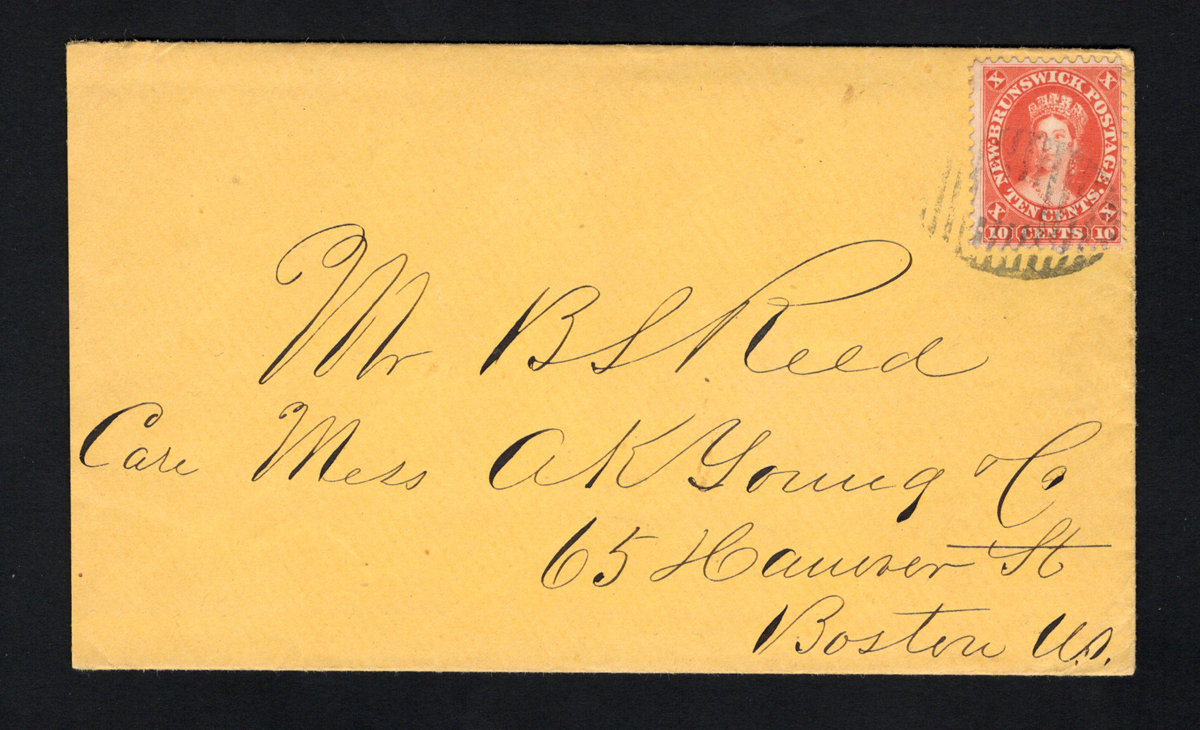 X X
NEW-BRUNSWICK POSTAGE.
TEN CENTS.
X X
10 CENTS 10
Mr B S Reed
Care Mess A K Young & Co
65 Hanover St
Boston U.S.